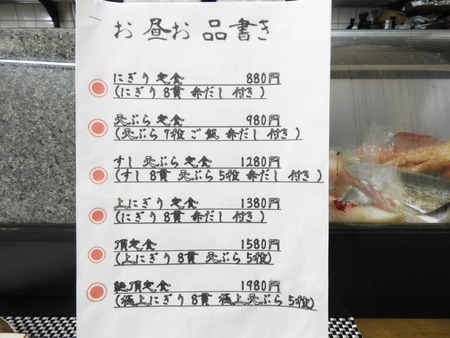 お昼お品書き
にぎり定食 880円
(にぎり8貫 赤だし付き)
天ぷら定食 980円
(天ぷら7種 ご飯 赤だし付き)
すし天ぷら定食 1280円
(すし8貫 天ぷら5種 赤だし付き)
上にぎり定食 1380円
(にぎり8貫 赤だし付き)
頂定食 1580円
(上にぎり8貫 天ぷら5種)
絶頂定食 1980円
(極上にぎり8貫 極上天ぷら5種)